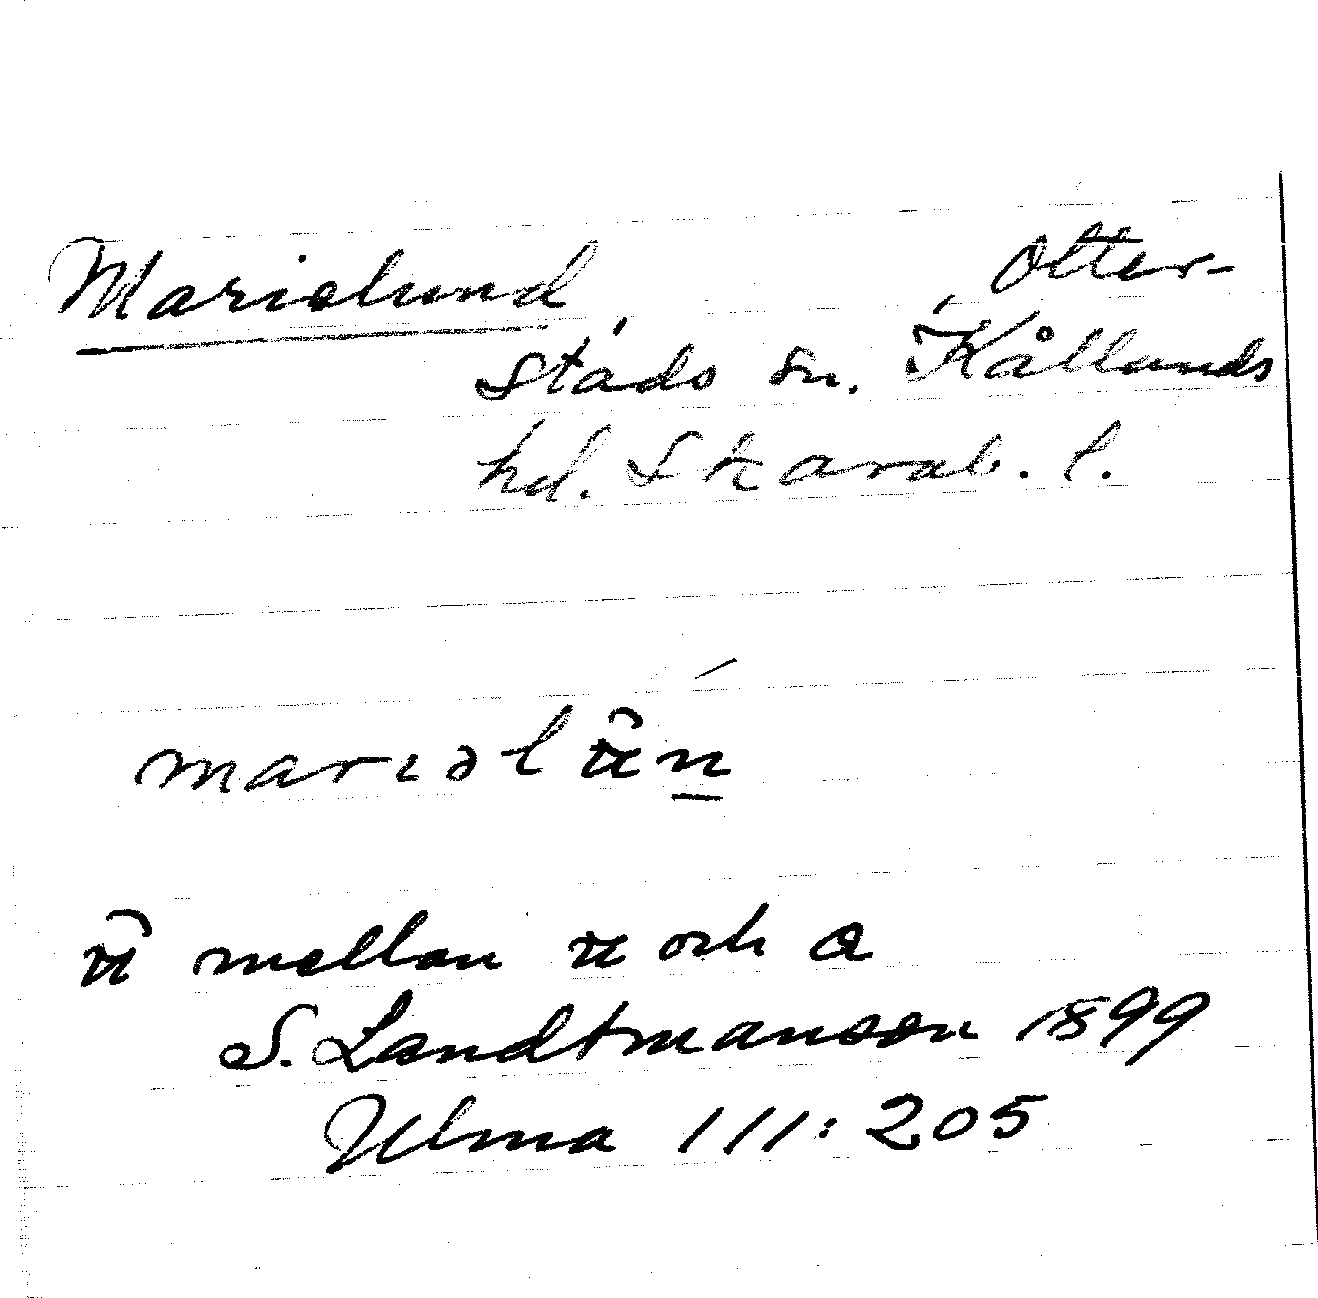 Marielund, Otter-
stads sn. Kållands
hd. Skarab. l.
mariəl n
mellan och
S. Landtmanson 1899
Ulma 111:205